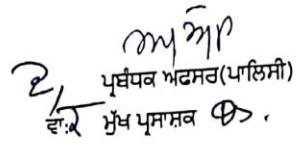 ਪ੍ਰਬੰਧਕ ਅਫਸਰ(ਪਾਲਿਸੀ)
ਵਾ: ਮੁੱਖ ਪ੍ਰਸਾਸ਼ਕ